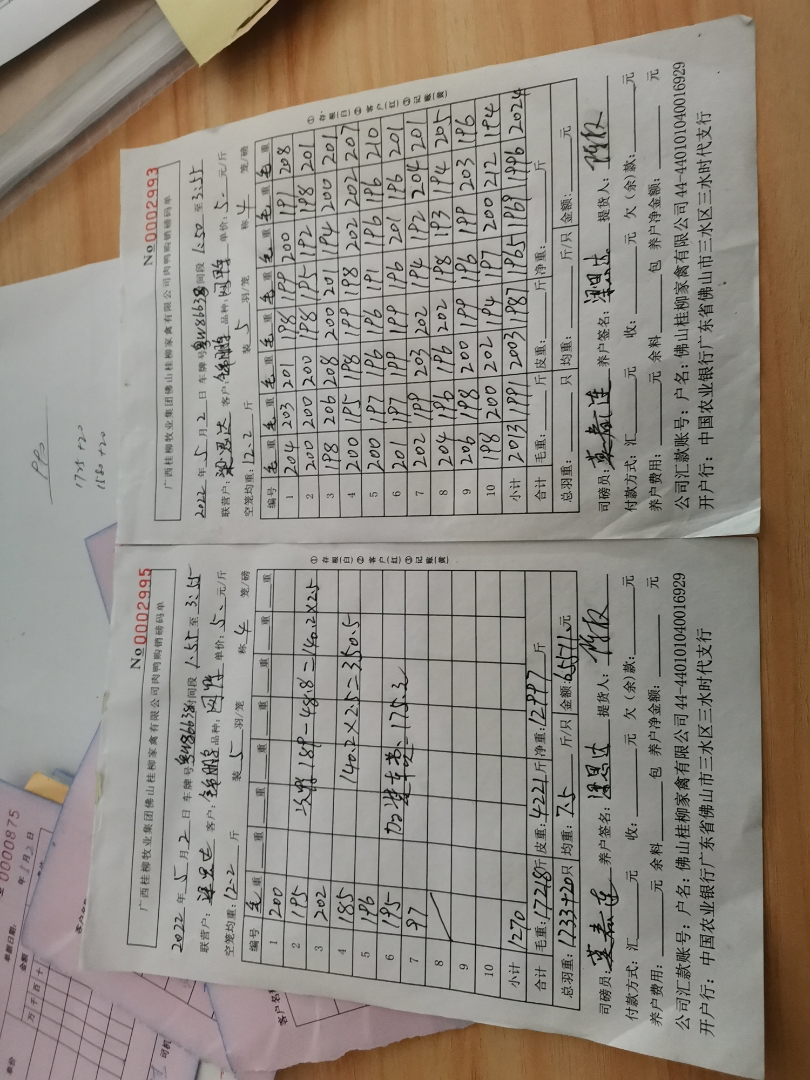 广西桂柳牧业集团佛山桂柳家禽有限公司肉鸭购销磅码单
No 0002995
2022 年 5 月 2 日 车牌号 粤W86638 时间段 1:55 至 3:55
联营户: 客户: 品种: 单价: 5. 元/斤
空笼均重: 12.2 斤 装 5 羽/笼 称 4 笼/磅
编号 毛 重 重 重 重 重 重 重 重
1 200
2 195
3 202 189-48.8=140.2×2.5
4 185 140.2×2.5=350.5
5 196
6 195 175.2
7 97
8
9
10
小计 1270
合计 毛重: 17218 斤 皮重: 4221 斤 净重: 12997 斤
总羽重: 1233+20 只 均重: 7.5 斤/只 金额: 65571 元
司磅员: 养户签名: 提货人:
付款方式: 汇 元 收: 元 欠(余)款: 元
养户费用: 元 余料 包 养户净金额: 元
公司汇款账号: 户名: 佛山桂柳家禽有限公司 44-440101040016929
开户行: 中国农业银行广东省佛山市三水区三水时代支行
①存根(白) ②客户(红) ③记账(黄)
广西桂柳牧业集团佛山桂柳家禽有限公司肉鸭购销磅码单
No 0002993
2022 年 5 月 2 日 车牌号 粤W86638 时间段 1:50 至 3:55
联营户: 客户: 品种: 单价: 5. 元/斤
空笼均重: 12.2 斤 装 5 羽/笼 称 4 笼/磅
编号 毛 重 毛 重 毛 重 毛 重 毛 重 毛 重 毛 重 毛 重
1 204 203 201 198 199 200 191 208
2 200 200 200 198 195 192 198 201
3 198 206 208 200 201 194 200 201
4 200 195 198 199 198 202 202 207
5 200 197 196 196 191 196 196 210
6 201 197 199 199 196 201 196 201
7 202 199 203 202 194 192 204 201
8 204 196 196 202 198 193 194 205
9 206 198 200 199 196 199 203 196
10 198 200 202 194 197 200 212 194
小计 2013 1991 2003 1987 1965 1969 1996 2024
合计 毛重: 斤 皮重: 斤 净重: 斤
总羽重: 只 均重: 斤/只 金额: 元
司磅员: 养户签名: 提货人:
付款方式: 汇 元 收: 元 欠(余)款: 元
养户费用: 元 余料 包 养户净金额: 元
公司汇款账号: 户名: 佛山桂柳家禽有限公司 44-440101040016929
开户行: 中国农业银行广东省佛山市三水区三水时代支行
①存根(白) ②客户(红) ③记账(黄)
0000875
年 1 月 2 日
金额
单价
1735+20
1580+20